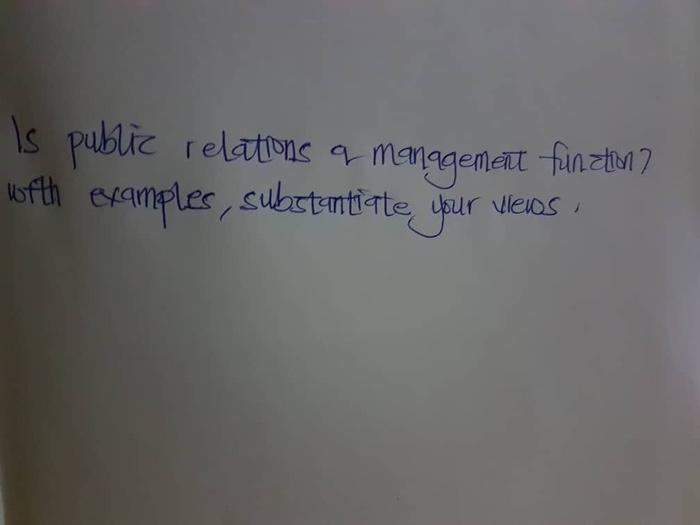 Is public relations a management function?
with examples, substantiate your views.